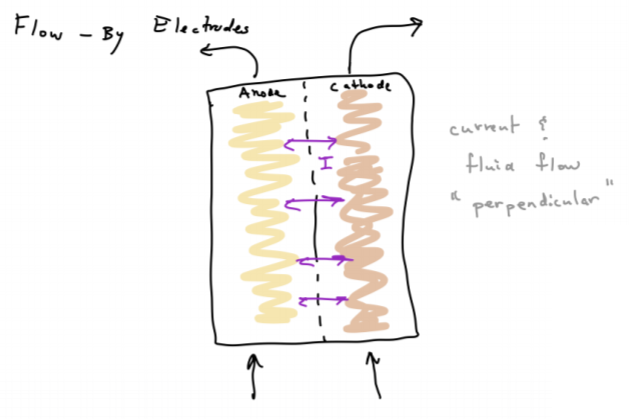 Flow - By Electrodes
Anode
Cathode
I
current &
fluid flow
"perpendicular"